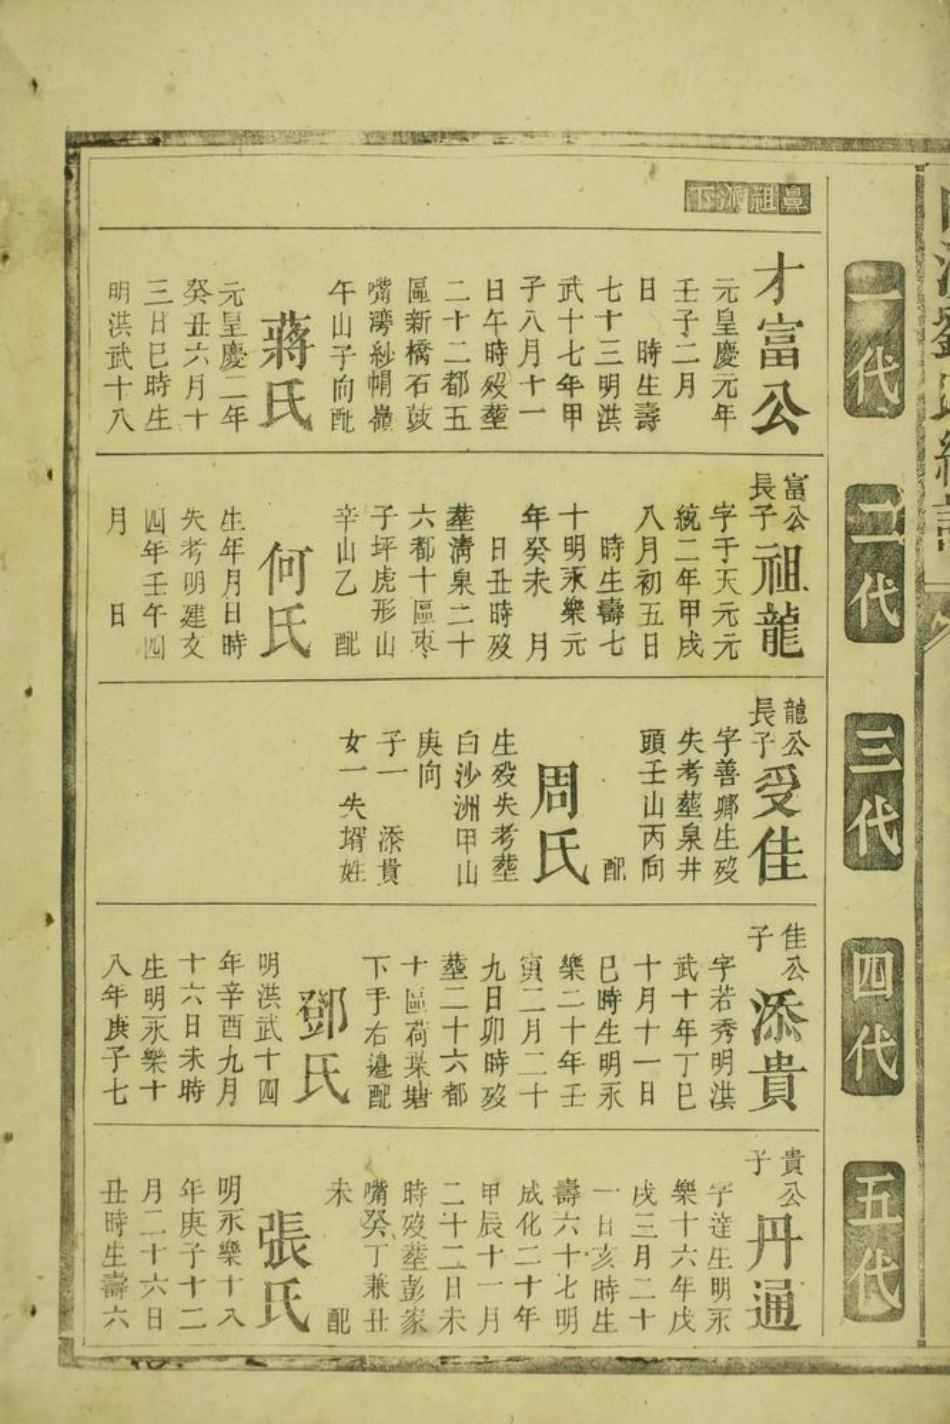 鼻祖派下
一代
才富公
元皇慶元年
壬子二月
日　時生壽
七十三明洪
武十七年甲
子八月十一
日午時歿塟
二十二都五
區新橋石鼓
嘴灣紗帽嶺
午山子向配
蔣氏
元皇慶二年
癸丑六月十
三日巳時生
明洪武十八
二代
富公
長子
祖龍
字于天元元
統二年甲戌
八月初五日
時生壽七
十明永樂元
年癸未　月
日丑時歿
塟清泉二十
六都十區枣
子坪虎形山
辛山乙　配
何氏
生年月日時
失考明建文
四年壬午四
月　日
三代
龍公
長子
受佳
字善卿生歿
失考塟泉井
頭壬山丙向
配
周氏
生歿失考塟
白沙洲甲山
庚向
子一　添貴
女一失壻姓
四代
佳公
子
添貴
字若秀明洪
武十年丁巳
十月十一日
巳時生明永
樂二十年壬
寅二月二十
九日卯時歿
塟二十六都
十區荷葉塘
下手右邉配
鄧氏
明洪武十四
年辛酉九月
十六日未時
生明永樂十
八年庚子七
五代
貴公
子
丹通
字達生明永
樂十六年戊
戌三月二十
一日亥時生
壽六十七明
成化二十年
甲辰十一月
二十二日未
時歿塟彭家
嘴癸丁兼丑
未　配
張氏
明永樂十八
年庚子十二
月二十六日
丑時生壽六